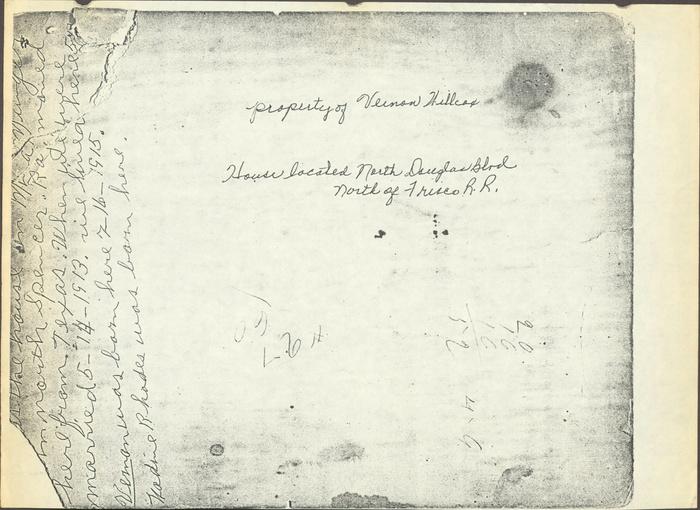 property of Vernon Willcox
House located North Douglas Blvd
North of Frisco R.R.
the house on
on north Spencer. Raymond
here from Texas. When we were
married 5-14-1913. we lived here
Vernon was born here 7-16-1915.
Nadine Rhodes was born here.